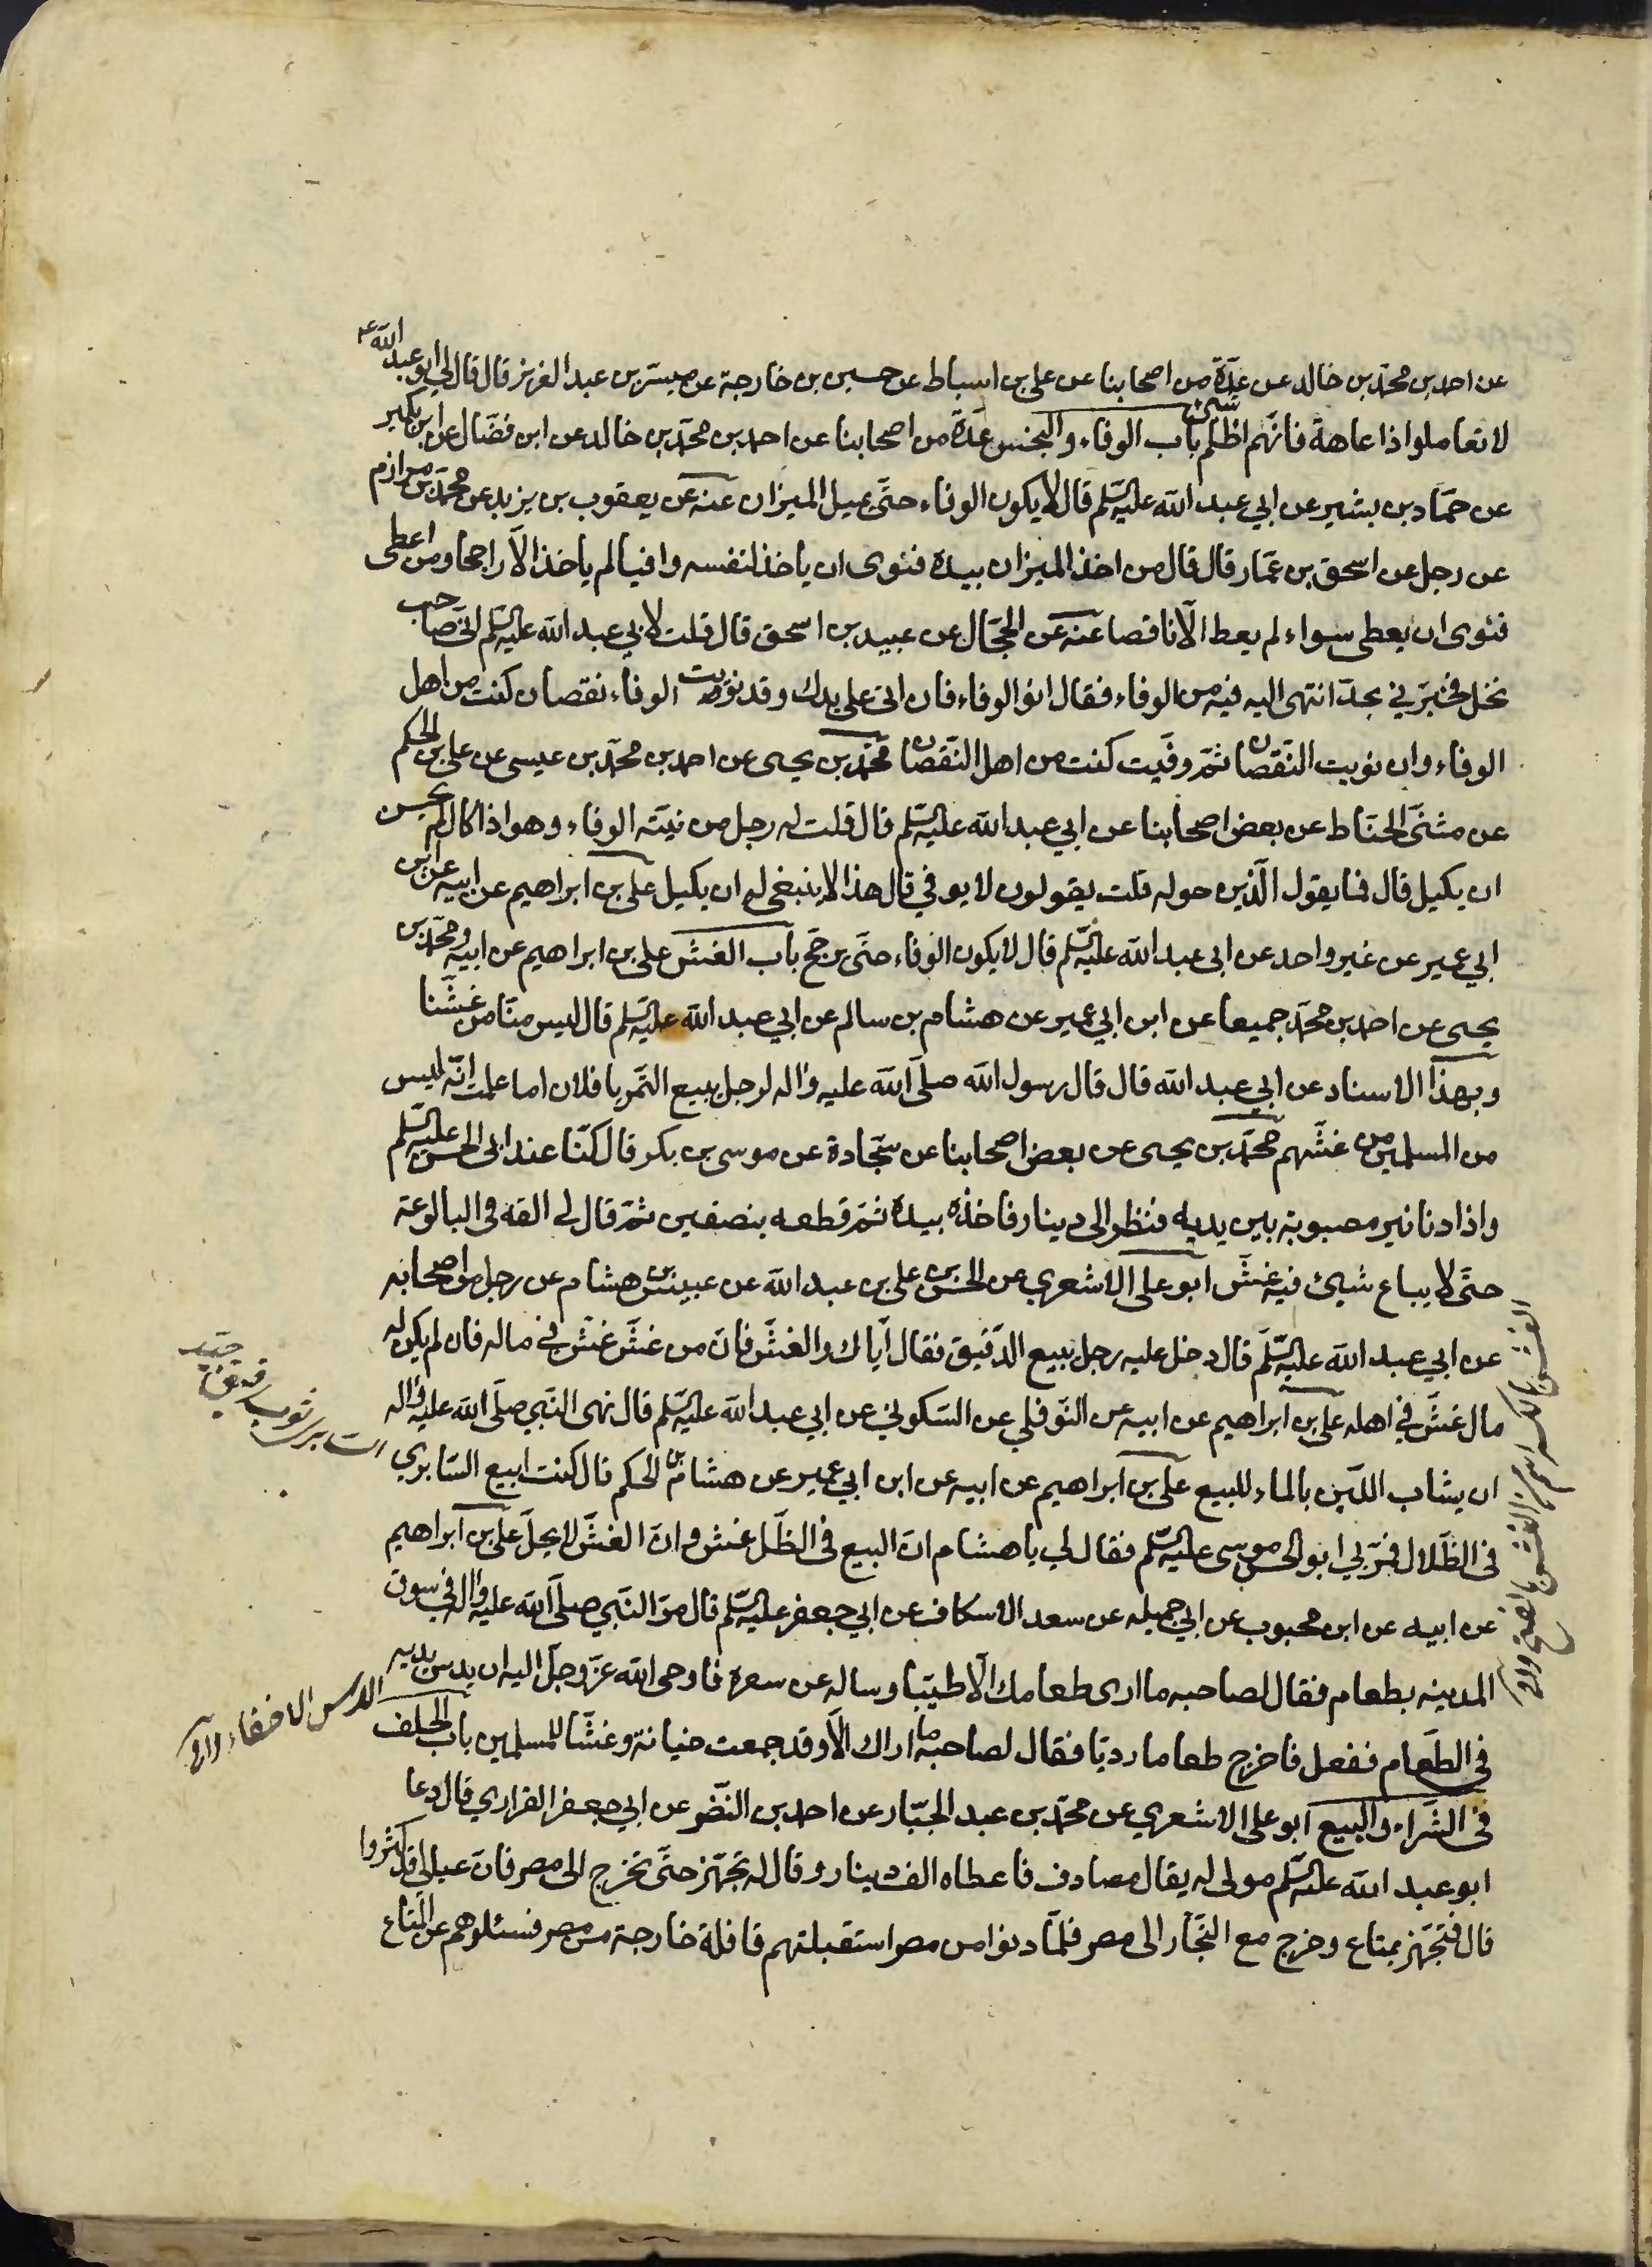 عن احمد بن محمد بن خالد عن عدّة من اصحابنا عن علي بن اسباط عن حسين بن خارجة عن ميسر بن عبد العزيز قال قال لي ابو عبد الله ع
لا تعاملوا ذا عاهة فانّهم اظلم شيئ باب الوفاء والبخس عدّة من اصحابنا عن احمد بن محمّد بن خالد عن ابن فضّال عن ابن بكير
عن حمّاد بن بشير عن ابي عبد الله عليه السّلم قال لا يكون الوفاء حتّى يميل الميزان عنه عن يعقوب بن يزيد عن محمّد بن مرازم
عن رجل عن اسحق بن عمّار قال قال من اخذ الميزان بيده فنوى ان ياخذ لنفسه وافيا لم ياخذ الّا راجحا ومن اعطى
فنوى ان يعطى سواء لم يعط الّا ناقصا عنه عن الحجّال عن عبيد بن اسحق قال قلت لابي عبد الله عليه السّلم انّي صاحب
نخل فخبّرني بحدّ انتهى اليه فيه من الوفاء فقال انو الوفاء فان اتى على يدك وقد نويت الوفاء نقصان كنت من اهل
الوفاء وان نويت النّقصان ثمّ وفّيت كنت من اهل النّقصان محمّد بن يحيى عن احمد بن محمّد بن عيسى عن علي بن الحكم
عن مثنّى الحنّاط عن بعض اصحابنا عن ابي عبد الله عليه السّلم قال قلت له رجل من نيّته الوفاء وهو اذا كال لم يحسن
ان يكيل قال فما يقول الّذين حوله قلت يقولون لا يوفي قال هذا لا ينبغي له ان يكيل علي بن ابراهيم عن ابيه عن ابن
ابي عمير عن غير واحد عن ابى عبد الله عليه السّلم قال لا يكون الوفاء حتّى يرجح باب الغشّ علي بن ابراهيم عن ابيه ومحمّد بن
يحيى عن احمد بن محمّد جميعا عن ابن ابي عمير عن هشام بن سالم عن ابي عبد الله عليه السّلم قال ليس منّا من غشّنا
وبهذا الاسناد عن ابي عبد الله قال قال رسول الله صلّى الله عليه واله لرجل يبيع التّمر يا فلان اما علمت انّه ليس
من المسلمين من غشّهم محمّد بن يحيى عن بعض اصحابنا عن سجّادة عن موسى بن بكر قال كنّا عند ابى الحسن عليه السّلم
واذا دنانير مصبوبة بين يديه فنظر الى دينار فاخذه بيده ثمّ قطعه بنصفين ثمّ قال لي القه فى البالوعة
حتّى لا يباع شيئ فيه غشّ ابو علي الاشعري عن الحسن بن علي بن عبد الله عن عبيس بن هشام عن رجل من اصحابه
عن ابي عبد الله عليه السّلم قال دخل عليه رجل يبيع الدّقيق فقال ايّاك والغشّ فانّ من غشّ غشّ في ماله فان لم يكن له
مال غشّ في اهله علي بن ابراهيم عن ابيه عن النّوفلي عن السّكوني عن ابي عبد الله عليه السّلم قال نهى النّبي صلّى الله عليه واله
ان يشاب اللّبن بالماء للبيع علي بن ابراهيم عن ابيه عن ابن ابي عمير عن هشام بن الحكم قال كنت ابيع السّابري
فى الظّلال فمرّ بي ابو الحسن موسى عليه السّلم فقال لي يا هشام انّ البيع فى الظّل غش وانّ الغشّ لا يحلّ علي بن ابراهيم
عن ابيه عن ابن محبوب عن ابي جميله عن سعد الاسكاف عن ابي جعفر عليه السّلم قال مرّ النّبي صلّى الله عليه واله في سوق
المدينه بطعام فقال لصاحبه ما ارى طعامك الّا طيّبا وساله عن سعره فاوحى الله عزّ وجلّ اليه ان يدس يديه
فى الطّعام ففعل فاخرج طعاما رديّا فقال لصاحبه ما اراك الّا وقد جمعت خيانة وغشّا للمسلمين باب الحلف
فى الشّراء والبيع ابو علي الاشعري عن محمّد بن عبد الجبّار عن احمد بن النّضر عن ابي جعفر الفزاري قال دعا
ابو عبد الله عليه السّلم مولى له يقال مصادف فاعطاه الف دينار وقال له تجهّز حتّى تخرج الى مصر فانّ عيالي قد كثروا
قال فتجهّز بمتاع وخرج مع التّجّار الى مصر فلمّا دنوا من مصر استقبلتهم قافلة خارجة من مصر فسئلوهم عن المتاع
الغش بالكسر اسم من الغش بالفتح
السابري ثوب رقيق جيّد
الدس الاخفاء